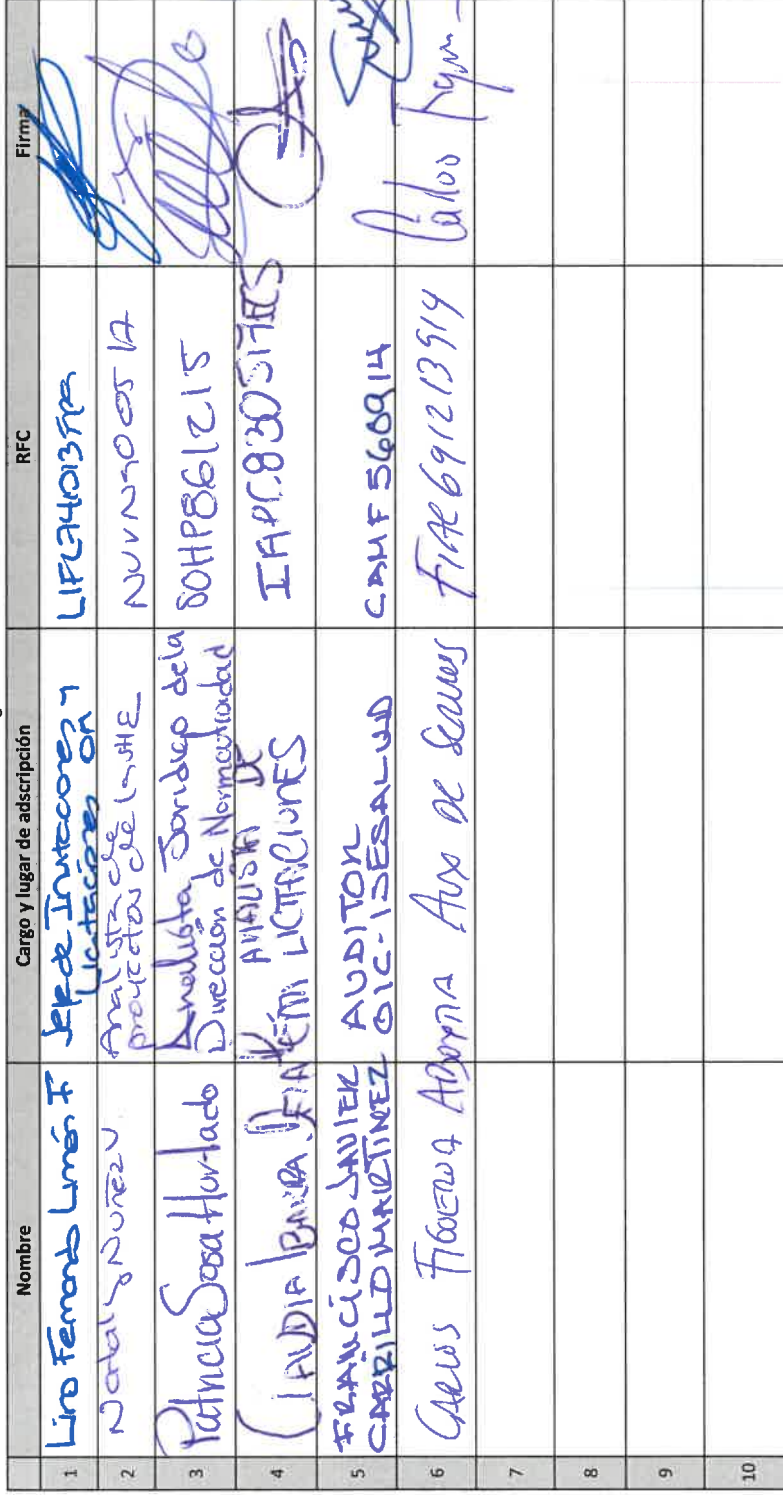 Nombre Cargo y lugar de adscripción RFC Firma
1 Lino Fernando Limón F Jefe de Invitaciones y
Licitaciones OM LIFL741013
2 Nataly Nuñez V Analista de
proyectos de la NUVN900512
3 Patricia Sosa Hurtado Analista Jurídico de la
Dirección de Normatividad SOHP861215
4 Claudia Ibarra ANALISTA DE
LICITACIONES IAPC830517
5 FRANCISCO JAVIER
CARRILLO MARTINEZ AUDITOR
OIC-ISESALUD CAMF560914
6 CARLOS FIGUEROA Aux de FIAC691213914 Carlos
7
8
9
10